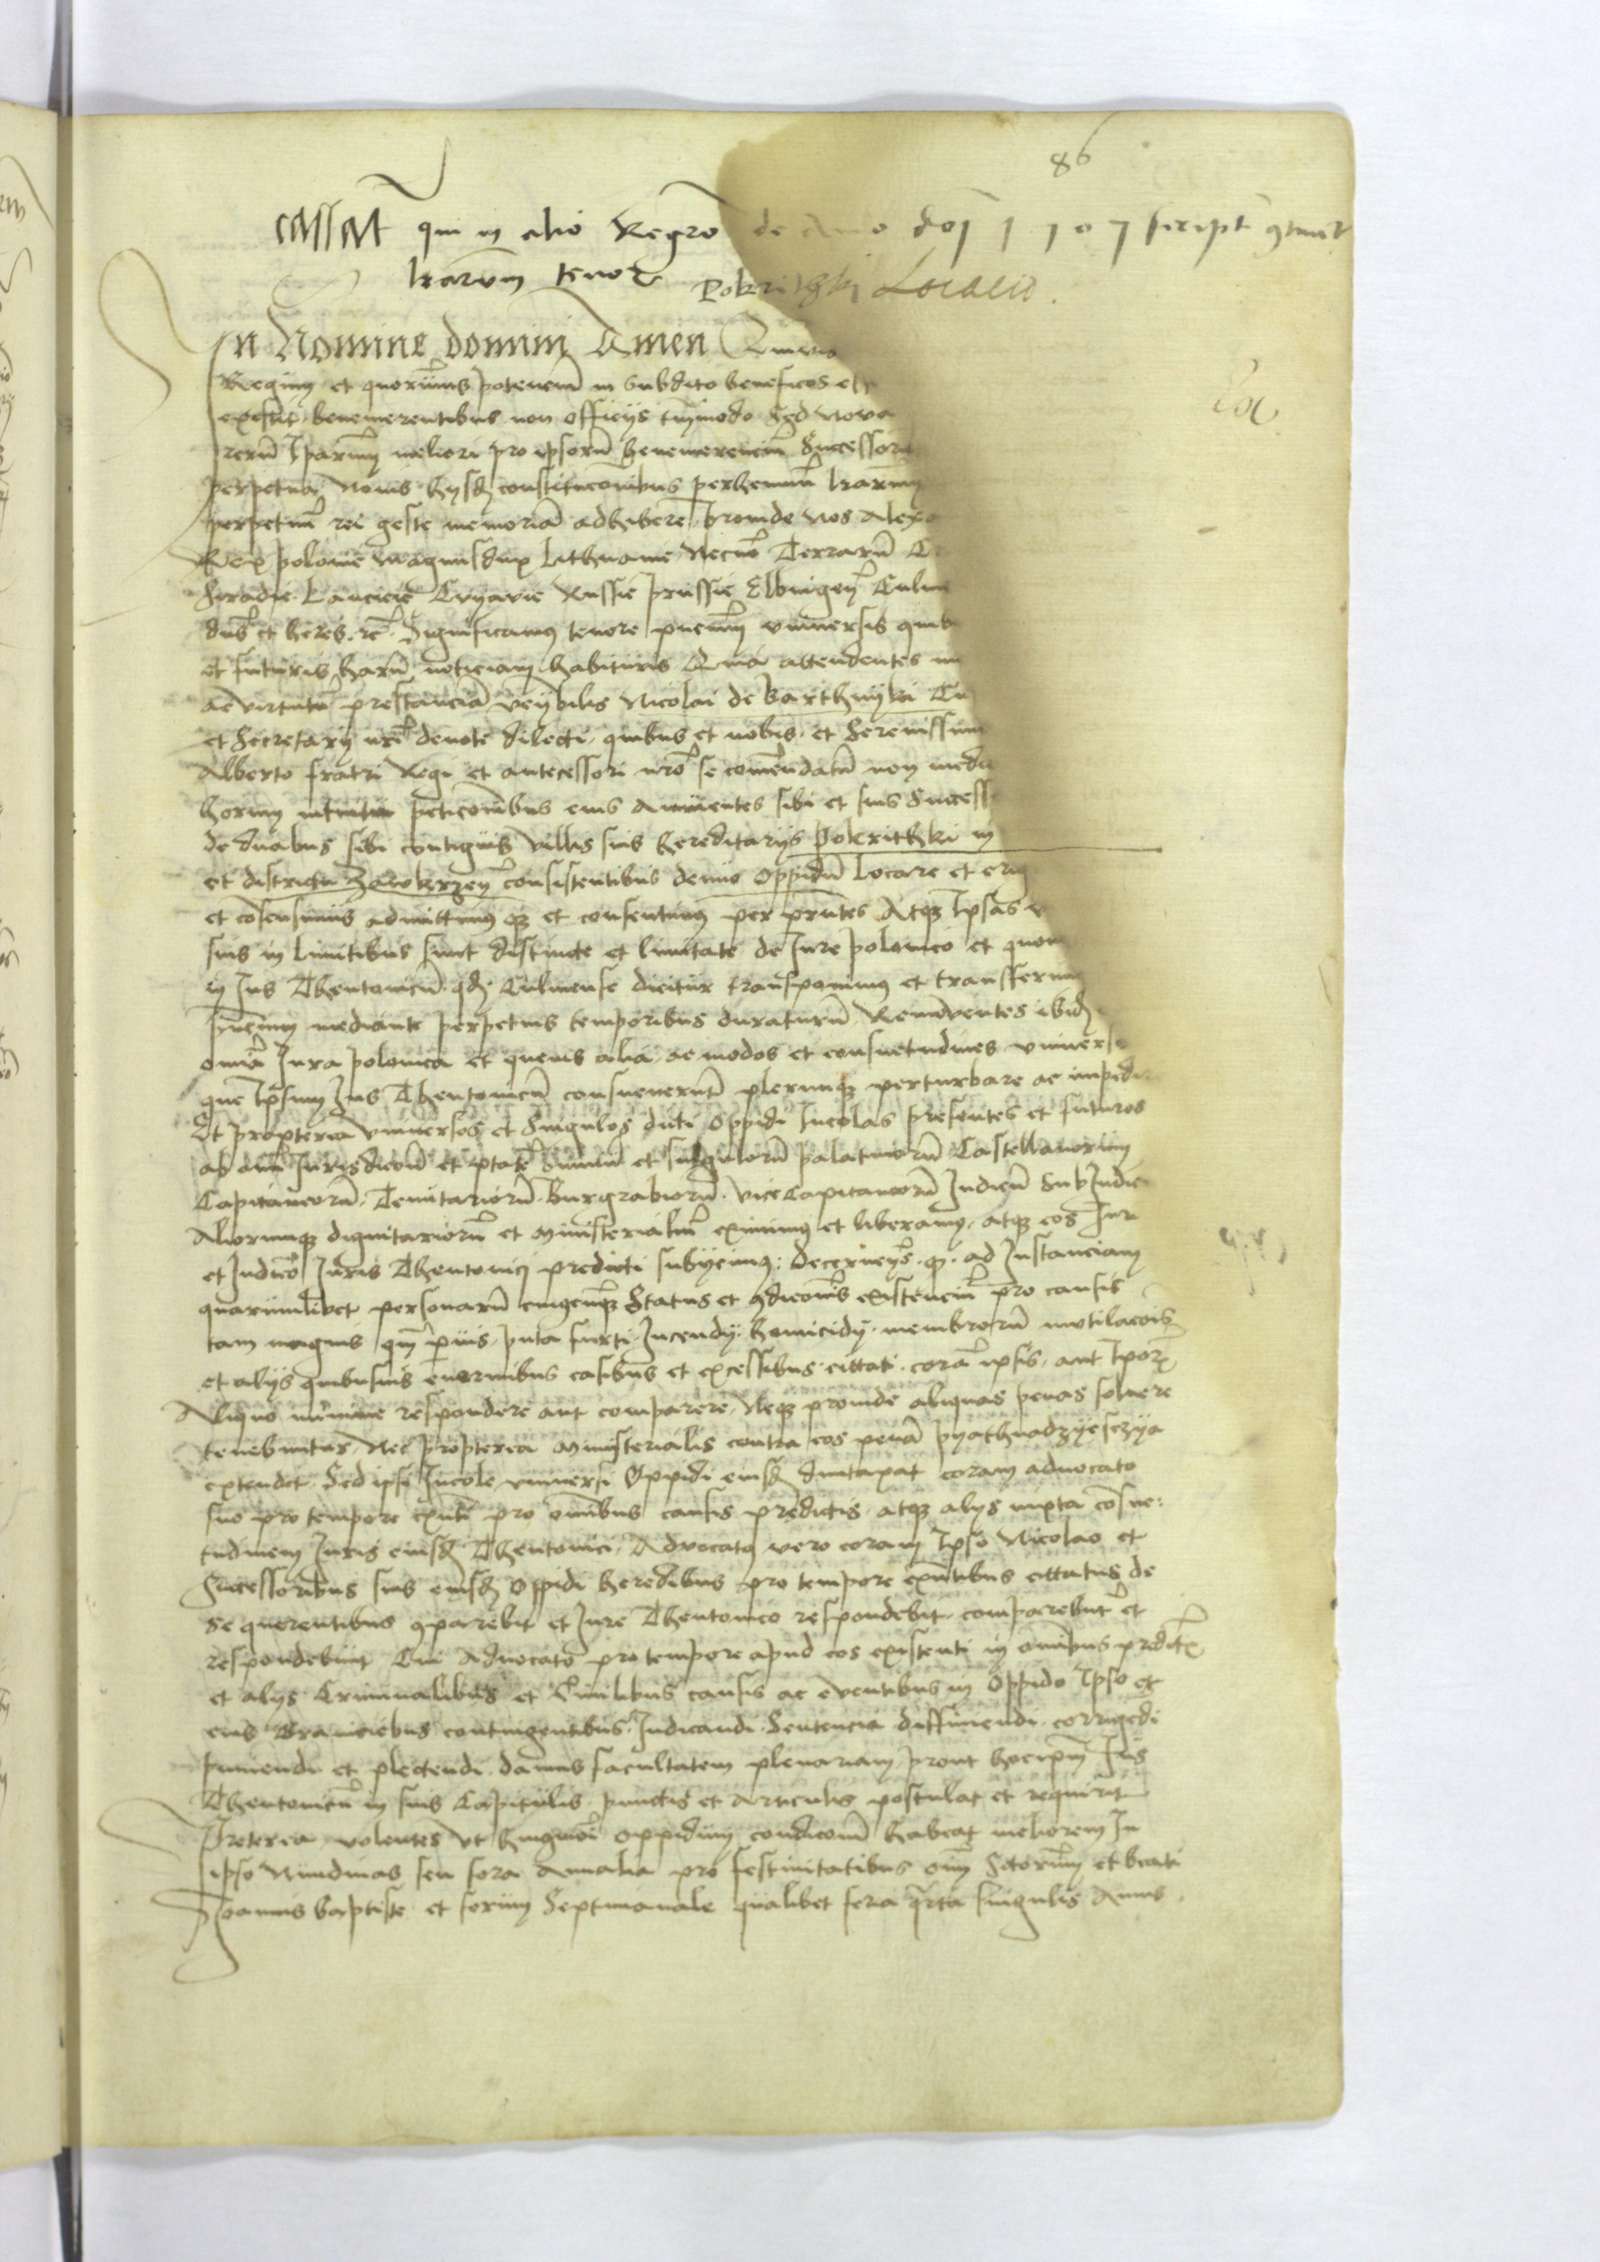 86
cassat qui in alio Regro de Anno doi 1507 script
lrarum tenor
Pokrithki Locacio.
In Nomine domini Amen
Regum et quorumvis potencium in subditos beneficos et
existit benemerentibus non officijs tmmodo Sed nova
rerum meliori pro ipsorum benemerencium Successorum
perpetua novis constitucionibus lrarum
perpetuam rei geste memoriam adhibere proinde Nos Alexa
Rex polonie Magnusdux Lithuanie Necno Terrarum Cr
Siradie Lancicie Cuyavie Russie prussie Elbingen Culm
dns et heres rc Significamus tenore pncium universis quib
et futuris harum noticiam habituris Quia attendentes
ac virtutum prestanciam Nicolai de Barthnyki
et Secretarij nri devote dilecti quibus et nobis et Serenissimo
Alberto fratri Regi et antecessori nro se comendatum non medi
horum intuitu peticionibus eius Annuentes sibi et suis Success
de duabus sibi contiguis villis suis hereditarijs Pokrithki in
et districtu Zawkrzen consistentibus denuo oppidum Locare et erig
et consensimus admittimusqz et consentimus per prntes Atqz Ipsas
suis in limitibus sunt distincte et limitate de Iure polonico et quovis
in Ius Thentonicum qd Culmense dicitur transponimus et transferimus
mediante perpetuis temporibus duraturum Removentes ibid
omnia Iura polonica et quevis alia ac modos et consuetudines univers
que Ipsum Ius Thentonicum consueverunt plerunqz perturbare ac impedir
Et propterea universos et Singulos dicti oppidi Incolas presentes et futuros
ab omni Iurisdicione et ptate omnium et singulorum palatinorum Castellanorum
Capitaneorum Tenutariorum Burgrabiorum viceCapitaneorum Iudicum SubIudic
Aliorumqz dignitariorum et Ministerialium eximimus et liberamus atqz eos Iur
et Iudicio Iuris Thentonici predicti subijcimus decernen qz ad Instanciam
quarumlibet personarum cuiuscunqz Status et condicionis existencium pro causis
tam magnis qm parvis puta furti Incendij homicidij membrorum mutilacois
et alijs quibusvis enormibus casibus et excessibus cittati coram ipsis aut Ipor
Aliquo minime respondere aut comparere Neqz proinde aliquas penas solvere
tenebuntur Nec propterea Ministerialis contra eos penam pyathnadzyesczya
extendet Sed ipsi Incole universi Oppidi eiusd duntaxat coram advocato
suo pro tempore existen pro omnibus causis predictis atqz alijs iuxta consue
tudinem Iuris eiusd Thentonici Advocatus vero coram Ipso Nicolao et
Successoribus suis eiusd Oppidi heredibus pro tempore exntibus cittatus de
se querentibus comparebit et Iure Thentonico respondebit comparebunt et
respondebunt Cui Advocato pro tempore apud eos existenti in omnibus predict
et alijs Criminalibus et Civilibus causis ac eventibus in Oppido Ipso et
eius Graniciebus contingentibus Iudicandi Sentencia diffiniendi corrigedi
puniendi et plectendi damus facultatem plenariam prout hoc ipm Ius
Thentonicum in suis Capitulis punctis et Articulis postulat et requirit
Preterea volentes ut huiusmoi oppidum condicom habeat meliorem In
ipso Nundinas seu fora Annalia pro festivitatibus omnium Sctorum et beati
Joannis baptiste et forum Septimanale qualibet feria qrta singulis Annis